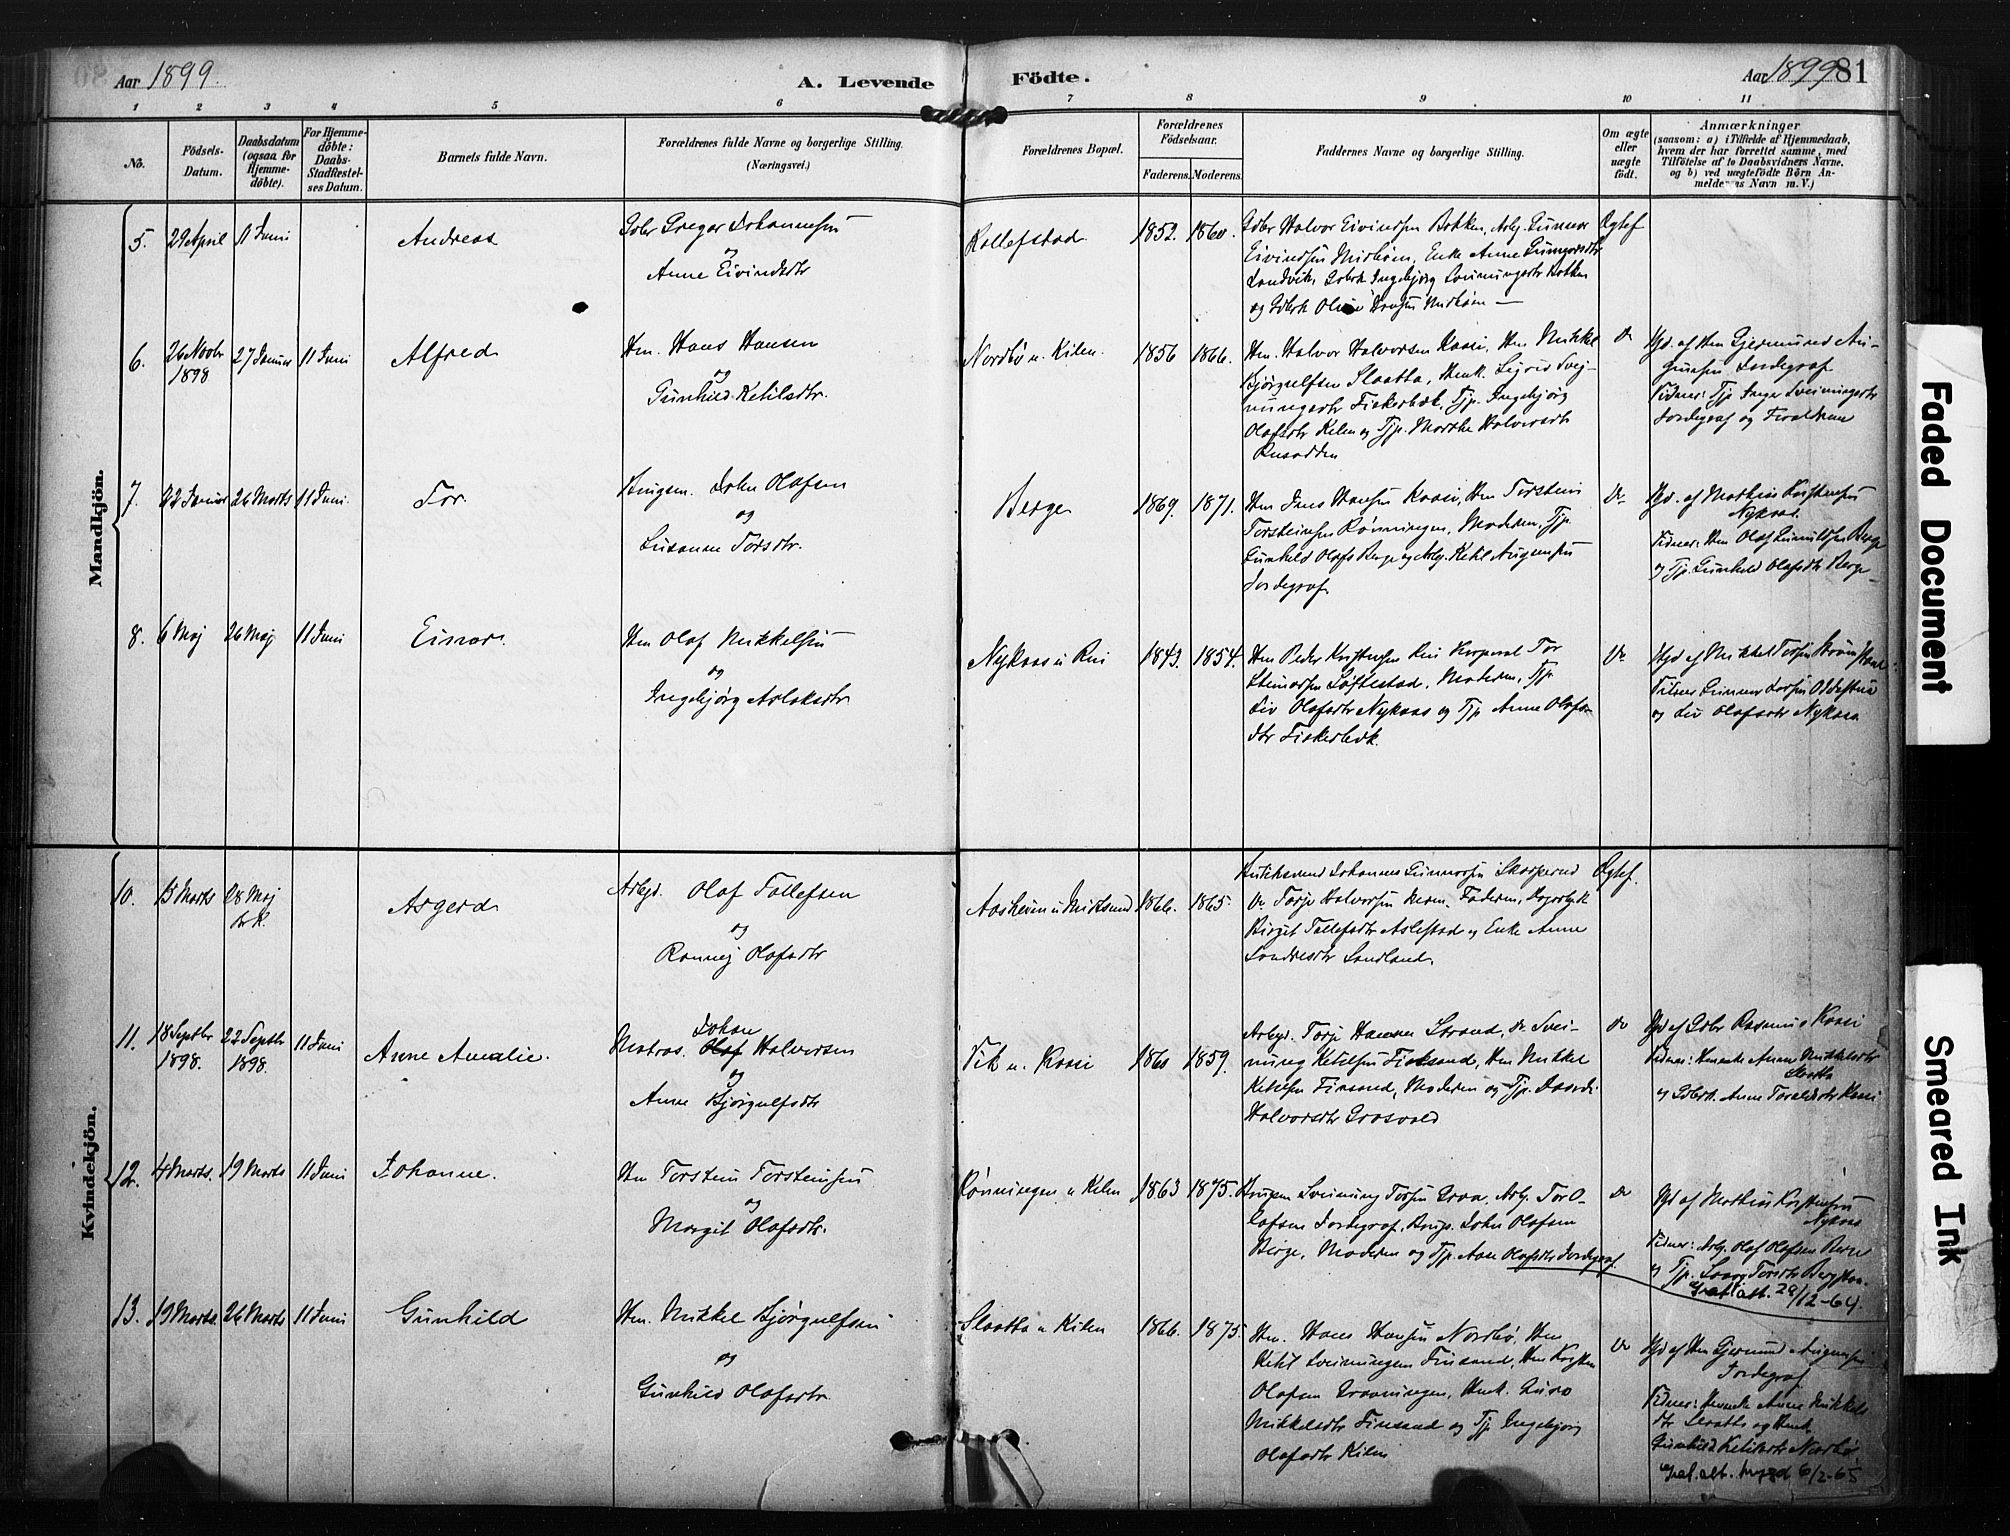 Aar 1899
A. Levende
Födte.
Aar 1899 81
1 2 3 4 5 6 7 8 9 10 11
No.
Födsels-
Datum.
Daabsdatum
(ogsaa for
Hjemme-
döbte).
For Hjemme-
döbte:
Daabs-
Stadfæstel-
ses Datum.
Barnets fulde Navn.
Forældrenes fulde Navne og borgerlige Stilling.
(Næringsvei.)
Forældrenes Bopæl.
Forældrenes
Födselsaar.
Faderens. Moderens.
Faddernes Navne og borgerlige Stilling.
Om ægte
eller
uægte
födt.
Anmærkninger
(saasom: a) i Tilfælde af Hjemmedaab,
hvem der har forrettet samme, med
Tilföielse af to Daabsvidners Navne,
og b) ved uægtefödte Börn An-
melderens Navn m. V.)
Mandkjön.
5. 29 April 11 Juni
Andreas
Gbr Gregar Johannessen
og
Anne Eivindsdtr
Rollefstad
1852. 1860.
Gbr Halvor Eivindsen Bakken, Arb. Gunnar
Eivindsen Midbøen, Enke Anne Gunnarsdtr
Sandvik, Gbrk Ingebjørg Sveinungsdtr Bakken
Ægtef
6. 26 Novbr
1898
27 Januar 11 Juni
Alfred
Hm. Hans Hansen
og
Gunhild Ketilsdtr.
Nordbø u. Kilen.
1856 1866.
Hm. Halvor Halvorsen Kaasi, Hm Mikkel
Bjørgulfsen Slaatta, Hmk. Sigrid Svej-
nungsdtr Fiskerbæk, Tjp. Ingebjørg
Olafsdtr Kilen og Tjp. Marthe Halvorsdtr
Do
Hjd. af Hm Gjermund Au-
gunsen Jordegraf
Vidner: Tjp Inger Sveinungsdtr
Jordegraf og Forældrene
7. 22 Januar 26 Marts 11 Juni.
Tor
Brugsm. John Olafsen
og
Susanne Torsdtr.
Berge
1869. 1871.
Hm Jens Hansen Kaasi, Hm Torstein
Torsteinsen Rønningen, Moderen, Tjp.
Gunhild Olafs Berge og Arb. Ketil Augunsen
Jordegraf
Do
Hjd. af Mathias Kristensen
Nykaas.
Vidner: Hm Olaf Gunnulfsen Berge
og Tjp. Gunhild Olafsdtr Berge
8. 6 Maj 26 Maj 11 Juni
Einar.
Hm Olaf Mikkelsen
og
Ingebjørg Aslaksdtr
Nykaas u Rui
1843. 1854.
Hm Peder Kristensen Rui Korporal Tor
Steinarsen Løftestad, Moderen, Tjp.
Liv Olafsdtr Nykaas og Tjp Anne Olafs-
dtr Fiskerbæk.
Do
Hjd af Mikkel Torsen
og Liv Olafsdtr Nykaas
Kvindekjön.
10. 15 Marts 28 Maj
Asgerd
Arbd. Olaf Tallefsen
og
Rannej Olafsdtr
Aasheim u Midtsund
1866. 1865.
Kirkesanger Johannes Gunnarsen
Do Tarje Halvorsen Moen, Faderen,
Birgit Tallefsdtr Aslestad og Enke Anne
Sondresdtr Sandland.
Ægtef.
11. 18 Septbr
1898.
22 Septbr
1898.
11 Juni
Anne Amalie.
Johan
Matros. Olaf Halvorsen
og
Anne Bjørgulfsdtr
Vik u. Kaasi
1860 1859.
Arbd. Tarje Hansen Strand, do Svei-
nung Ketilsen Finsand, Hm Mikkel
Ketilsen Finsand, Moderen og Tjp.
Halvorsdtr Grosvold
do
Hjd af Gbr Rasmus Kaasi
Vidner: Hmenke Anne Mikkelsdtr
Slaatta
og Gbrk. Anne Toreldsdtr Kaasi
12. 4 Marts. 19 Marts 11 Juni
Johanne.
Hm Torstein Torsteinsen
og
Margit Olafsdtr.
Rønningen u Kilen
1863 1875.
Brugsm Sveinung Torsen Graa, Arb. Tor O-
lafsen Jordegraf, Brugs. John Olafsen
Berge, Moderen og Tjp. Aase Olafsdtr Jordegraf.
do
Hjd af Mathias Kristensen
Nykaas
Vidner: Arb. Olaf Olafsen Berge
og Tjp.
att. 29/12-64.
13. 19 Marts 26 Marts 11 Juni
Gunhild
Hm. Mikkel Bjørgulfsen
og
Gunhild Olafsdtr.
Slaatta u Kilen
1866. 1875.
Hm. Hans Hansen Nordbø, Hm
Ketil Sveinungsen Finsand, Hm Kristen
Olafsen Graaningen, Hmk. Guro
Mikkelsdtr Finsand og Tjp Ingebjørg
Olafsdtr Kilen
Do
Hjd af Hm Gjermund Augunsen
Jordegraf
Vidner: Hmenke Anne Mikkels
dtr Slaatta og Hmk.
Gunhild Ketilsdtr Nordbø
att. 6/2-65
Faded Document
Smeared Ink